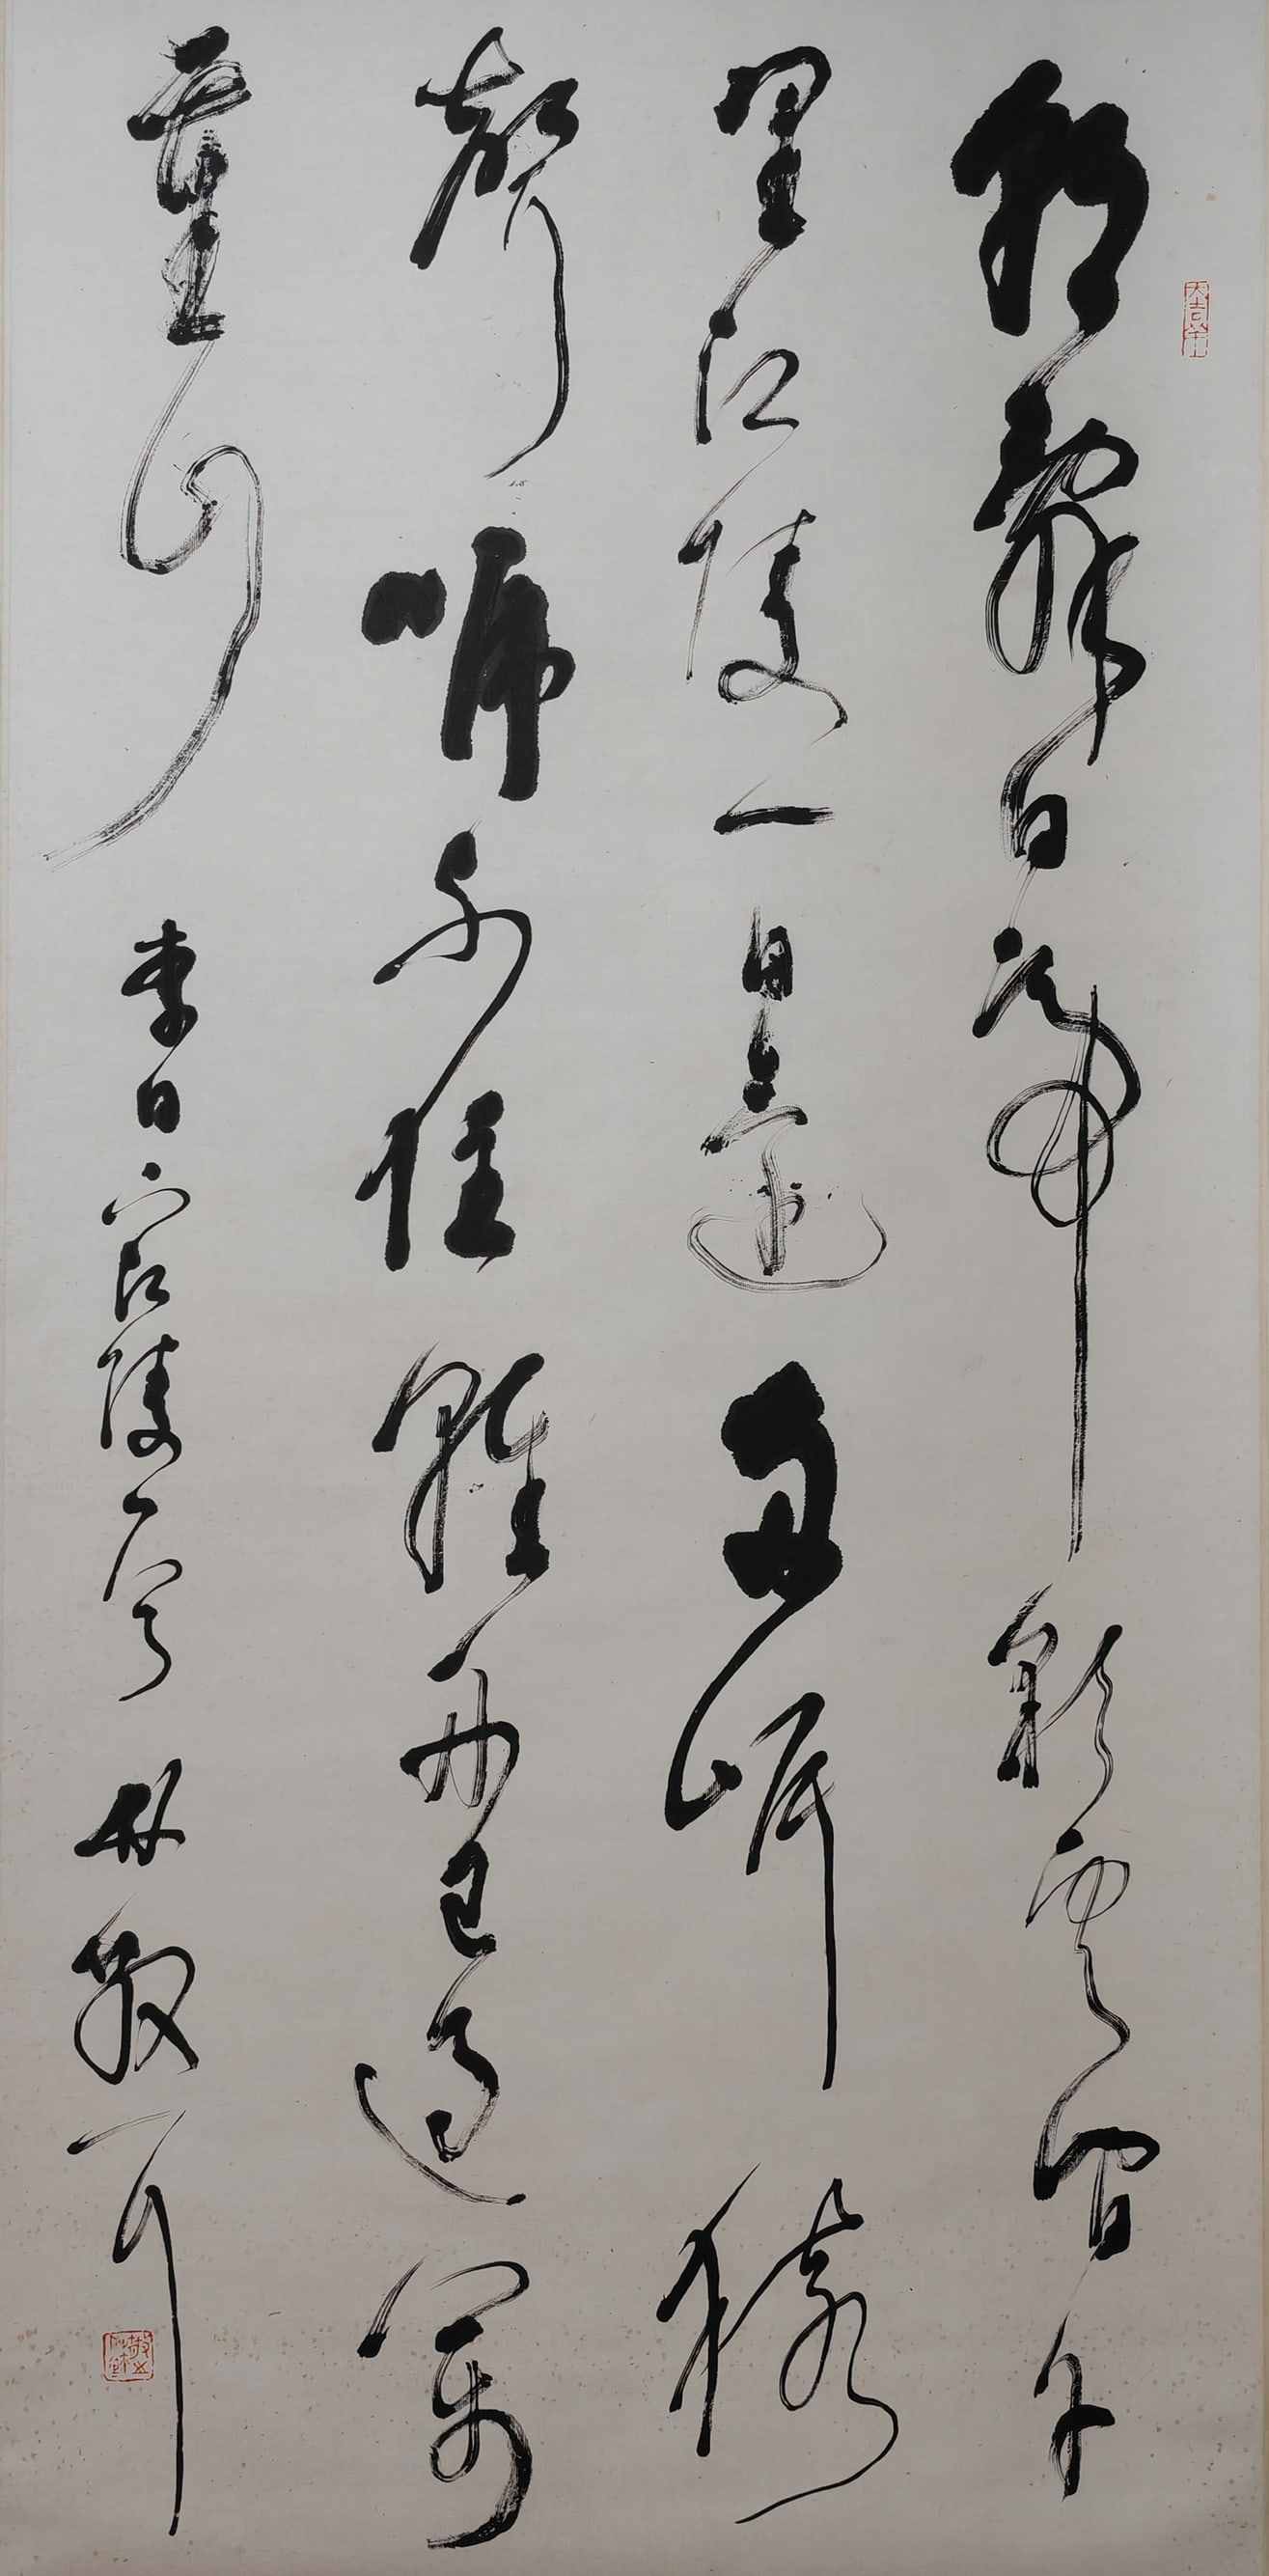 大吉羊
朝辭白帝彩雲間千
里江陵一日還兩岸猿
聲啼不住輕舟已過萬
重山 李白下江陵一首 林散耳